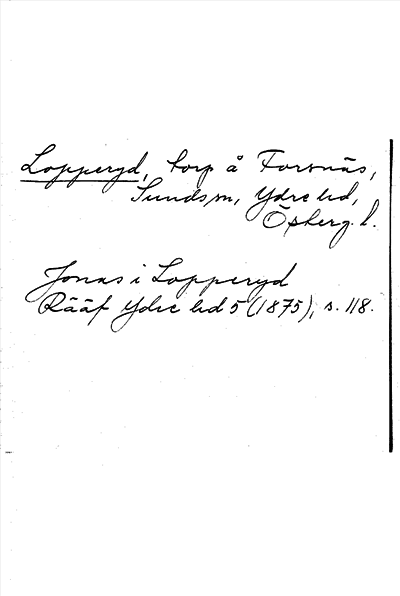 Lopperyd, torp å Forsnäs,
Sunds sn, Ydre hd,
Östergl.
Jonas i Lopperyd
Rääf Ydre hd 5 (1875), s. 118.